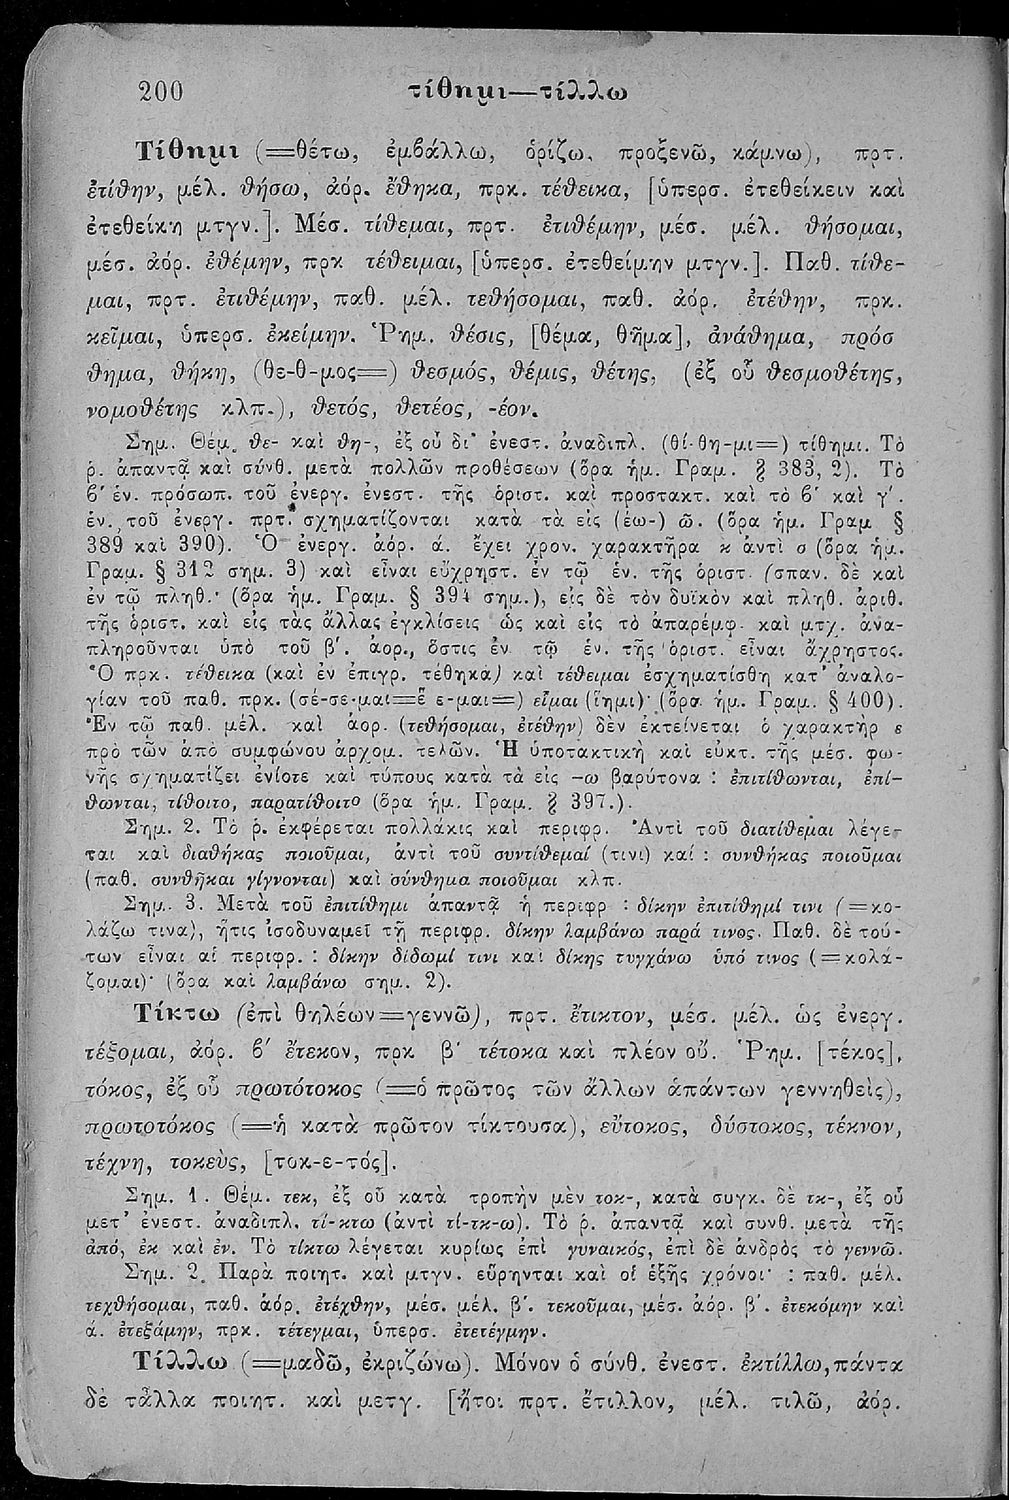 200 τίθημι—τίλλω
Τίθημι (=θέτω, ἐμβάλλω, ὁρίζω, προξενῶ, κάμνω), πρτ.
ἐτίθην, μέλ. θήσω, ἀόρ. ἔθηκα, πρκ. τέθεικα, [ὑπερσ. ἐτεθείκειν καὶ
ἐτεθείκη μτγν.]. Μέσ. τίθεμαι, πρτ. ἐτιθέμην, μέσ. μέλ. θήσομαι,
μέσ. ἀόρ. ἐθέμην, πρκ τέθειμαι, [ὑπερσ. ἐτεθείμην μτγν.]. Παθ. τίθε-
μαι, πρτ. ἐτιθέμην, παθ. μέλ. τεθήσομαι, παθ. ἀόρ. ἐτέθην, πρκ.
κεῖμαι, ὑπερσ. ἐκείμην. Ῥημ. θέσις, [θέμα, θῆμα], ἀνάθημα, πρόσ
θημα, θήκη, (θε-θ-μος=) θεσμός, θέμις, θέτης, (ἐξ οὗ θεσμοθέτης,
νομοθέτης κλπ.), θετός, θετέος, -έον.
Σημ. Θέμ. θε- καὶ θη-, ἐξ οὗ δι' ἐνεστ. ἀναδιπλ. (θί-θη-μι=) τίθημι. Τὸ
ῥ. ἀπαντᾷ καὶ σύνθ. μετὰ πολλῶν προθέσεων (ὅρα ἡμ. Γραμ. § 383, 2). Τὸ
β' ἑν. πρόσωπ. τοῦ ἐνεργ. ἐνεστ. τῆς ὁριστ. καὶ προστακτ. καὶ τὸ β' καὶ γ'.
ἑν. τοῦ ἐνεργ. πρτ. σχηματίζονται κατὰ τὰ εἰς (έω-) ῶ. (ὅρα ἡμ. Γραμ §
389 καὶ 390). Ὁ ἐνεργ. ἀόρ. ά. ἔχει χρον. χαρακτῆρα κ ἀντὶ σ (ὅρα ἡμ.
Γραμ. § 312 σημ. 3) καὶ εἶναι εὔχρηστ. ἐν τῷ ἑν. τῆς ὁριστ. (σπαν. δὲ καὶ
ἐν τῷ πληθ.· (ὅρα ἡμ. Γραμ. § 394 σημ.), εἰς δὲ τὸν δυϊκὸν καὶ πληθ. ἀριθ.
τῆς ὁριστ. καὶ εἰς τὰς ἄλλας ἐγκλίσεις ὡς καὶ εἰς τὸ ἀπαρέμφ. καὶ μτχ. ἀνα-
πληροῦνται ὑπὸ τοῦ β'. ἀορ., ὅστις ἐν τῷ ἑν. τῆς ὁριστ. εἶναι ἄχρηστος.
Ὁ πρκ. τέθεικα (καὶ ἐν ἐπιγρ. τέθηκα) καὶ τέθειμαι ἐσχηματίσθη κατ' ἀναλο-
γίαν τοῦ παθ. πρκ. (σέ-σε-μαι=ἕ ε-μαι=) εἷμαι (ἵημι)· (ὅρα ἡμ. Γραμ. § 400).
Ἐν τῷ παθ. μέλ. καὶ ἀορ. (τεθήσομαι, ἐτέθην) δὲν ἐκτείνεται ὁ χαρακτὴρ ε
πρὸ τῶν ἀπὸ συμφώνου ἀρχομ. τελῶν. Ἡ ὑποτακτικὴ καὶ εὐκτ. τῆς μέσ. φω-
νῆς σχηματίζει ἐνίοτε καὶ τύπους κατὰ τὰ εἰς –ω βαρύτονα : ἐπιτίθωνται, ἐπί-
θωνται, τίθοιτο, παρατίθοιτο (ὅρα ἡμ. Γραμ. § 397.).
Σημ. 2. Τὸ ῥ. ἐκφέρεται πολλάκις καὶ περιφρ. Ἀντὶ τοῦ διατίθεμαι λέγε-
ται καὶ διαθήκας ποιοῦμαι, ἀντὶ τοῦ συντίθεμαί (τινι) καί : συνθήκας ποιοῦμαι
(παθ. συνθῆκαι γίγνονται) καὶ σύνθημα ποιοῦμαι κλπ.
Σημ. 3. Μετὰ τοῦ ἐπιτίθημι ἀπαντᾷ ἡ περιφρ : δίκην ἐπιτίθημί τινι (=κο-
λάζω τινα), ἥτις ἰσοδυναμεῖ τῇ περιφρ. δίκην λαμβάνω παρά τινος. Παθ. δὲ τού-
των εἶναι αἱ περιφρ. : δίκην δίδωμί τινι καὶ δίκης τυγχάνω ὑπό τινος (=κολά-
ζομαι)· (ὅρα καὶ λαμβάνω σημ. 2).
Τίκτω (ἐπὶ θηλέων=γεννῶ), πρτ. ἔτικτον, μέσ. μέλ. ὡς ἐνεργ.
τέξομαι, ἀόρ. β' ἔτεκον, πρκ β' τέτοκα καὶ πλέον οὔ. Ῥημ. [τέκος],
τόκος, ἐξ οὗ πρωτότοκος (=ὁ πρῶτος τῶν ἄλλων ἁπάντων γεννηθείς),
πρωτοτόκος (=ἡ κατὰ πρῶτον τίκτουσα), εὔτοκος, δύστοκος, τέκνον,
τέχνη, τοκεὺς, [τοκ-ε-τός].
Σημ. 1. Θέμ. τεκ, ἐξ οὗ κατὰ τροπὴν μὲν τοκ-, κατὰ συγκ. δὲ τκ-, ἐξ οὗ
μετ' ἐνεστ. ἀναδιπλ. τί-κτω (ἀντὶ τί-τκ-ω). Τὸ ῥ. ἀπαντᾷ καὶ συνθ. μετὰ τῆς
ἀπό, ἐκ καὶ ἐν. Τὸ τίκτω λέγεται κυρίως ἐπὶ γυναικός, ἐπὶ δὲ ἀνδρὸς τὸ γεννῶ.
Σημ. 2. Παρὰ ποιητ. καὶ μτγν. εὕρηνται καὶ οἱ ἑξῆς χρόνοι· : παθ. μέλ.
τεχθήσομαι, παθ. ἀόρ. ἐτέχθην, μέσ. μέλ. β'. τεκοῦμαι, μέσ. ἀόρ. β'. ἐτεκόμην καὶ
ά. ἐτεξάμην, πρκ. τέτεγμαι, ὑπερσ. ἐτετέγμην.
Τίλλω (=μαδῶ, ἐκριζώνω). Μόνον ὁ σύνθ. ἐνεστ. ἐκτίλλω, πάντα
δὲ τἆλλα ποιητ. καὶ μετγ. [ἤτοι πρτ. ἔτιλλον, μέλ. τιλῶ, ἀόρ.